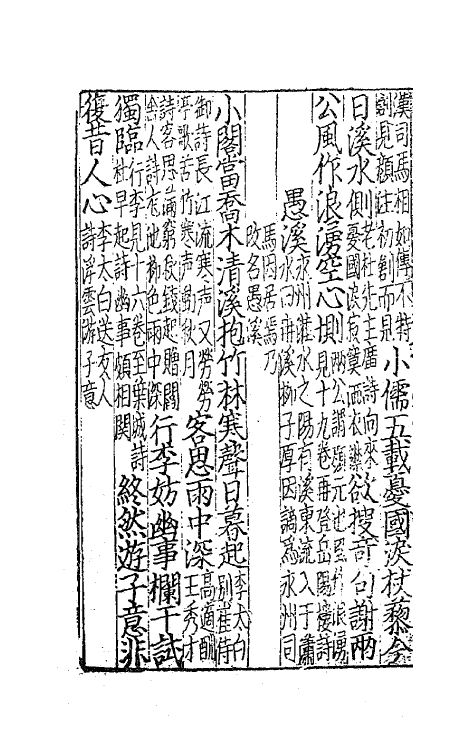 漢司馬相如傳不特
創見顏註初創而見
小儒五載憂國淚杖藜今
日溪水側
老杜先主廟詩向來
憂國淚寂寞洒衣
欲搜奇句謝兩
公風作浪湧空心惻
兩公謂元也浪湧
見十九卷再登岳陽樓詩
愚溪
永州灌水之陽有溪東流入于瀟
水曰冉溪柳子厚因謫爲永州司
馬因居焉乃
改名愚溪
小閣當喬木清溪抱竹林寒聲日暮起
李太白
別崔侍
御詩長江流寒声又勞勞
亭歌苦竹寒聲動秋月
客思雨中深
高適酬
王秀才
詩客思滿窮秋錢起贈閻
舍人詩龍池柳色雨中深
行李妨幽事欄干試
獨臨
行李見十六卷至葉城詩
杜早起詩幽事頗相関
終然遊子意非
復昔人心
李太白送友人
詩浮雲游子意